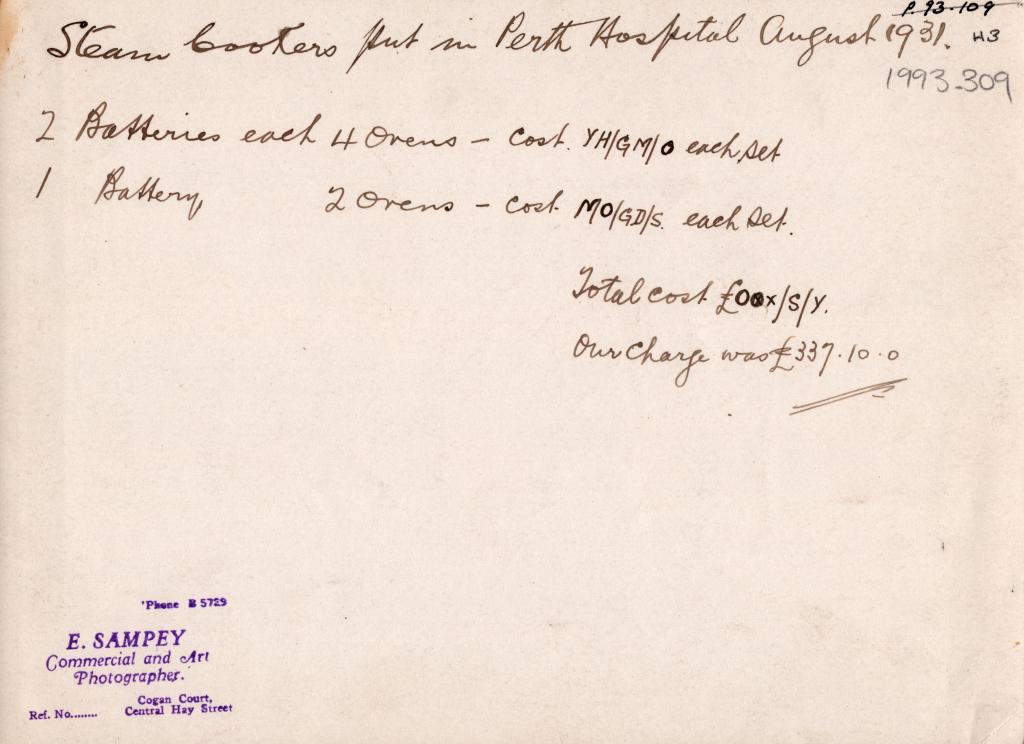 P. 93.109
Steam Cookers put in Perth Hospital August 1931. H3
1993.309
2 Batteries each 4 Ovens - cost. YH/GM/O each set
1 Battery 2 Ovens - cost MO/GD/S. each set.
Total cost £OOX/S/Y.
Our Charge was £337.10.0
'Phone B 5729
E. SAMPEY
Commercial and Art
Photographer.
Cogan Court,
Ref. No........ Central Hay Street